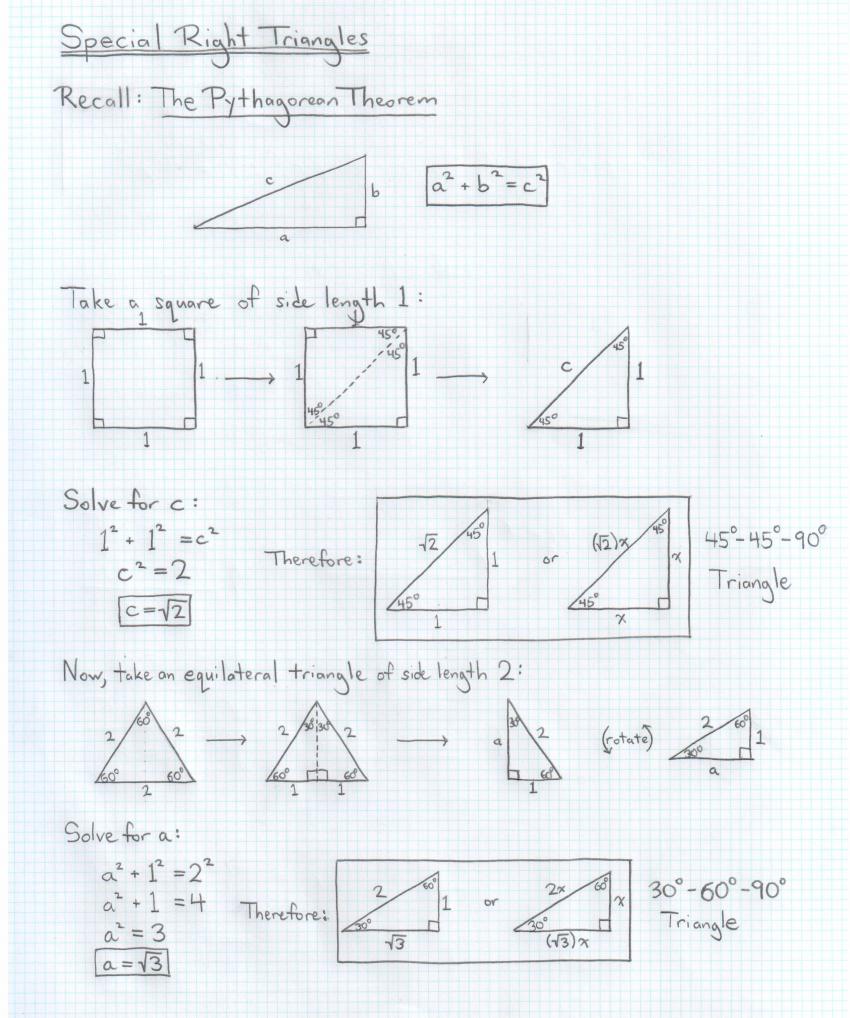 Special Right Triangles
Recall: The Pythagorean Theorem
c
b
a
a² + b² = c²
Take a square of side length 1:
1
1
1
1
1
45°
45°
1
1
45°
45°
1
45°
c
1
45°
1
Solve for c:
1² + 1² = c²
c² = 2
c = √2
Therefore:
√2
45°
1
45°
1
or
(√2)x
45°
x
45°
x
45°-45°-90°
Triangle
Now, take an equilateral triangle of side length 2:
60°
2
2
60°
60°
2
30°
30°
2
2
60°
60°
1
1
30°
a
2
60°
1
(rotate)
2
60°
1
30°
a
Solve for a:
a² + 1² = 2²
a² + 1 = 4
a² = 3
a = √3
Therefore:
2
60°
1
30°
√3
or
2x
60°
x
30°
(√3)x
30°-60°-90°
Triangle